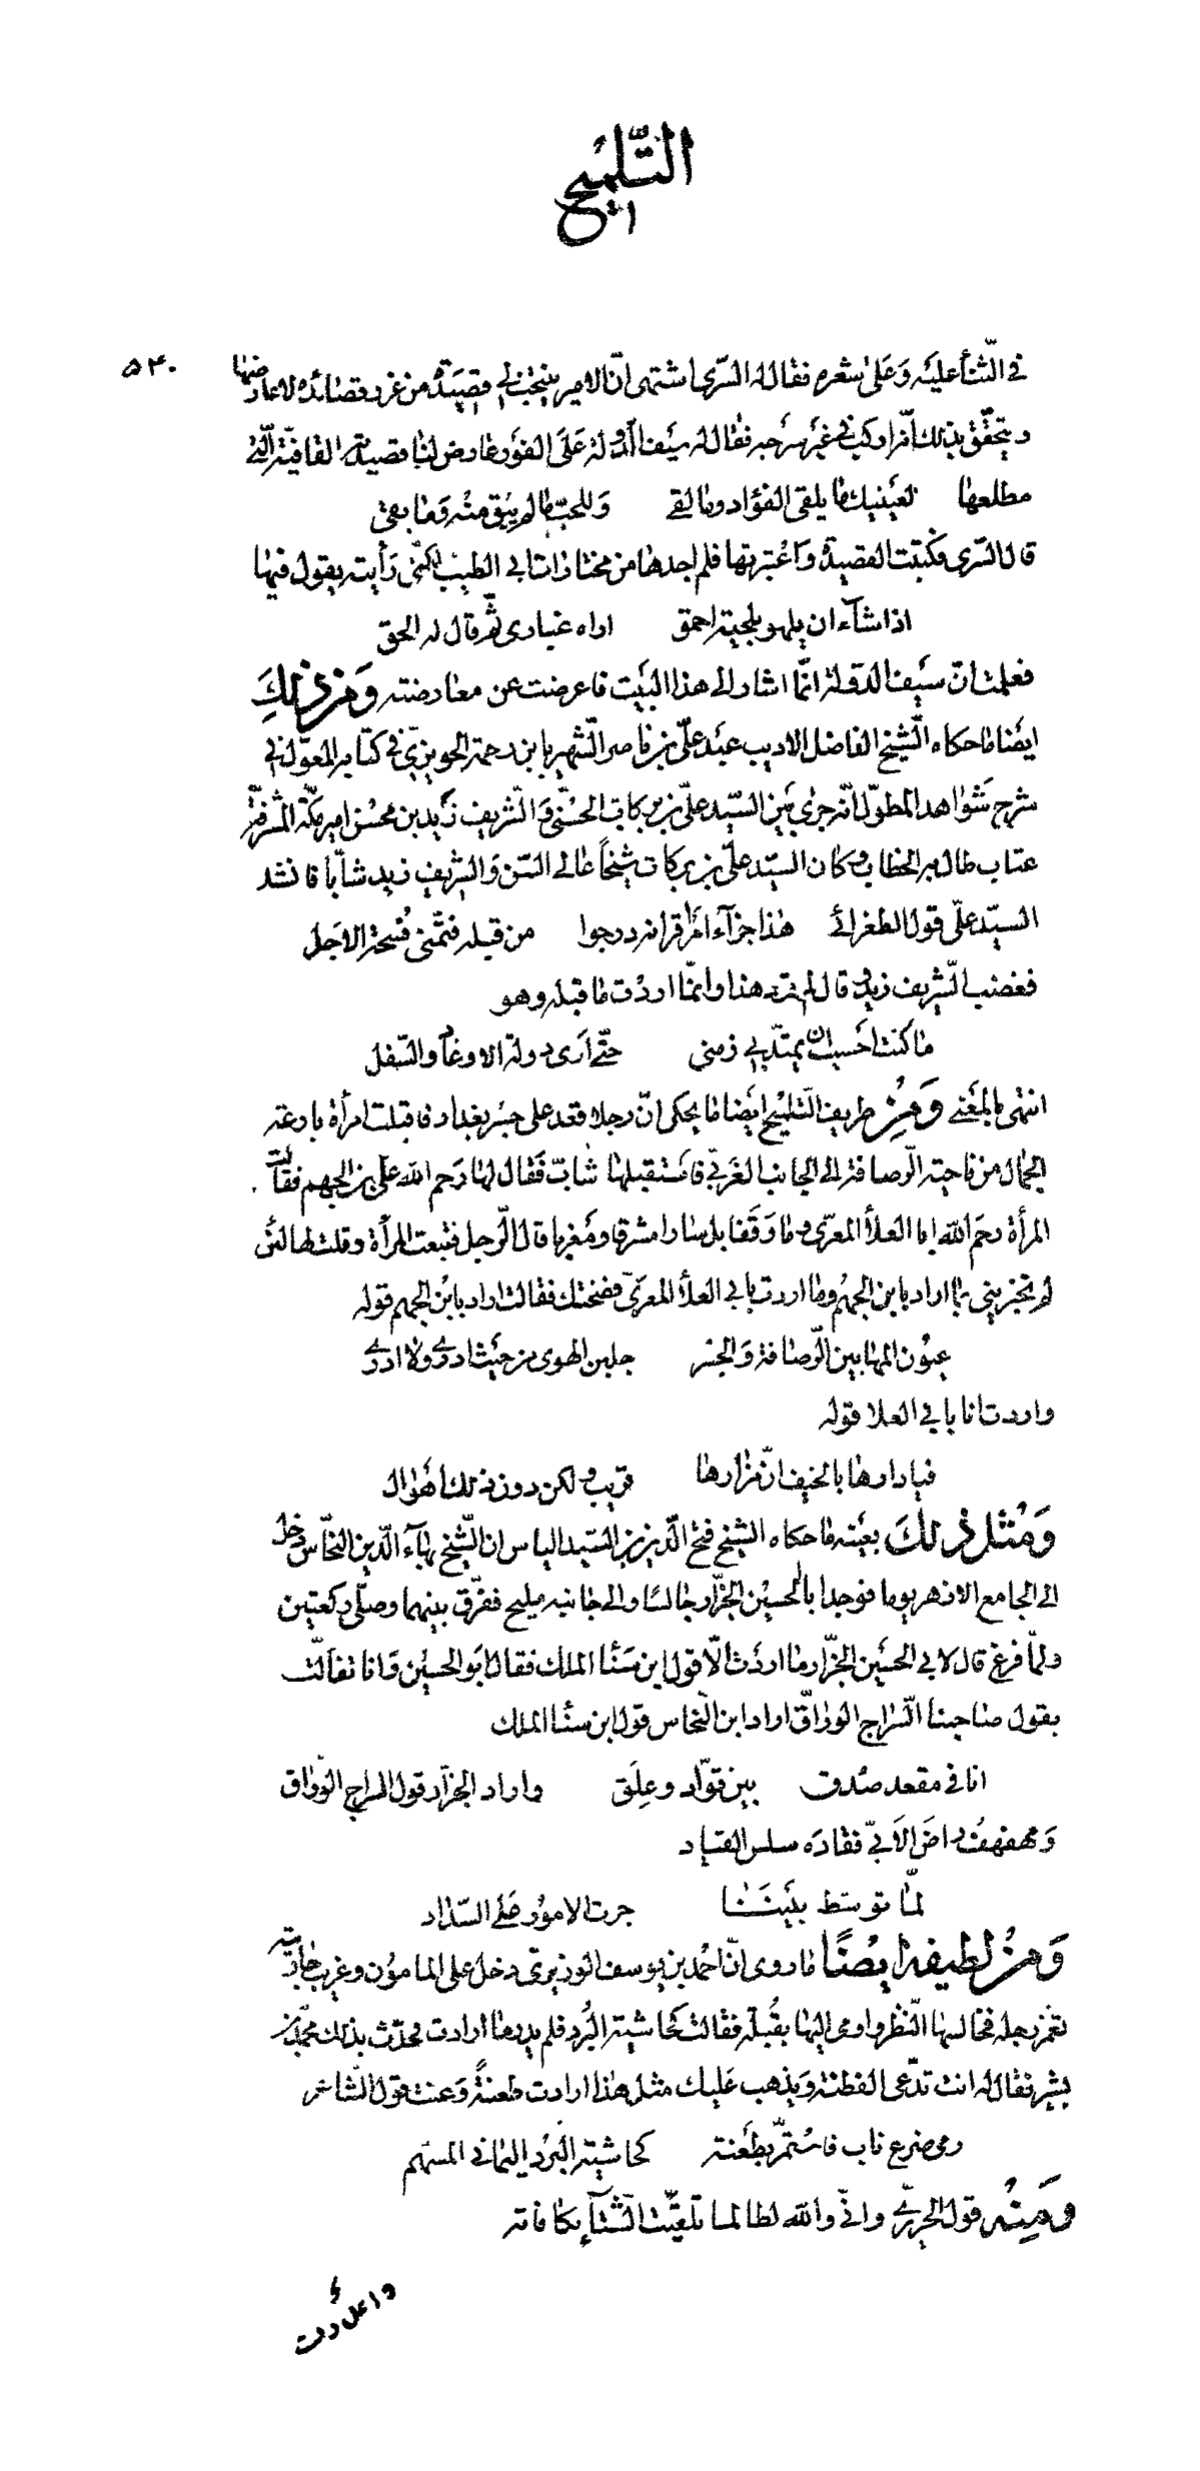 التّلميح
٥٤٠
في الثّناء عليه وعلى شعره فقال له السّري اشتهى انّ الامير ينتخب لي قصيدة من غرر قصائده لاعارضها
ويتحقّق بذلك انّه اركب في غير سرجه فقال له سيف الدّولة على الفور عارض لنا قصيدته القافيّة الّتي
مطلعها لعينيك ما يلقى الفؤاد وما لقى وللحبّ ما لم يبق منّه وما بقى
قال السّرى فكتبت القصيدة واعتبرتها فلم اجدها من مختارات ابي الطيّب لكنّى رأيته يقول فيها
اذا شآء ان يلهو بلحية احمق اراه غباري ثمّ قال له الحق
فعلمت انّ سيف الدّولة انّما اشار الى هذا البيت فاعرضت عن معارضته ومن ذلك
ايضا ما حكاه الشّيخ الفاضل الاديب عبد علىّ بن ناصر الشّهير بابن رحمة الحويزيّ في كتابه المعوّل في
شرح شواهد المطوّل انّه جرى بين السيّد علىّ بن بركات الحسنّي والشّريف زيد بن محسن امير مكّة المشرفّة
عتاب طال به الخطاب وكان السيّد علىّ بن بركات شيخاً عالي السّن والشّريف زيد شابّا فانشد
السيّد علىّ قول الطغرائي هذا جزآء امرأ اقرانه درجوا من قبله فتمّنى فسحة الاجل
فغضب الشّريف زيد وقال لم ترد هذا وانّما اردت ما قبله وهو
ما كنت احسب ان يمتدّ بي زمني حتّى ارى دولة الاوغاد والسّفل
انتهى بالمعنى ومن طريف التّلميح ايضا ما يحكى انّ رجلا قعد على جسر بغداد فاقبلت امرأة بارعة
الجمال من ناحية الرّصافة الى الجانب الغربيّ فاستقبلها شابّ فقال لها رحم الله علىّ بن الجهم فقالت
المرأة رحم الله ابا العلاء المعرّى وما وقفا بل سارا مشرقا ومغربا قال الرّجل فتبعت المرأة وقلت لها لئن
لم تخبريني بما اراد بابن الجهم وما اردت بابي العلاء المعرّي فضحتك فقالت اراد بابن الجهم قوله
عيون المها بين الرّصافة والجسر جلبن الهوى من حيث ادري ولا ادري
واردت انا بابي العلا قوله
فيا دارها بالخيف انّ مزارها قريب ولكن دون ذلك اهوال
ومثل ذلك بعينه ما حكاه الشيخ فتح الدّين بن السّيد الياس ان الشّيخ بهآء الدّين النحّاس دخل
الى الجامع الازهر يوما فوجد ابا الحسين الجزّار جالسا والى جانبه مليح ففرّق بينهما وصلّى ركعتين
ولمّا فرغ قال لابي الحسين الجزّار ما اردت الّا قول ابن سنا الملك فقال ابو الحسين وانا تفألت
بقول صاحبنا السّراج الورّاق اراد ابن النّحاس قول ابن سنا الملك
انا في مقعد صدق بين قوّاد وعلق واراد الجزّار قول السراج الورّاق
ومهفهف راض الابيّ فقاده سلس القياد
لمّا توسّط بيننا جرت الامور على السّداد
ومن لطيفه ايضًا ما روى انّ احمد بن يوسف الوزيري دخل على المامون وعريب جاريته
تغمز رجله فخالسها النّظر واومى اليها بقبلة فقالت كحاشية البرد فلم يدر ما ارادت فحدّث بذلك محمّد بن
بشير فقال له انت تدّعى الفطنة ويذهب عليك مثل هذا ارادت طعنةً وعنت قول الشّاعر
رمى ضرع ناب فاستمرّ بطعنة كحاشية البرد اليماني المسهّم
ومنه قول الحريري وانّي والله لطالما تلقّيت الشّتآء بكافاته
واعددت